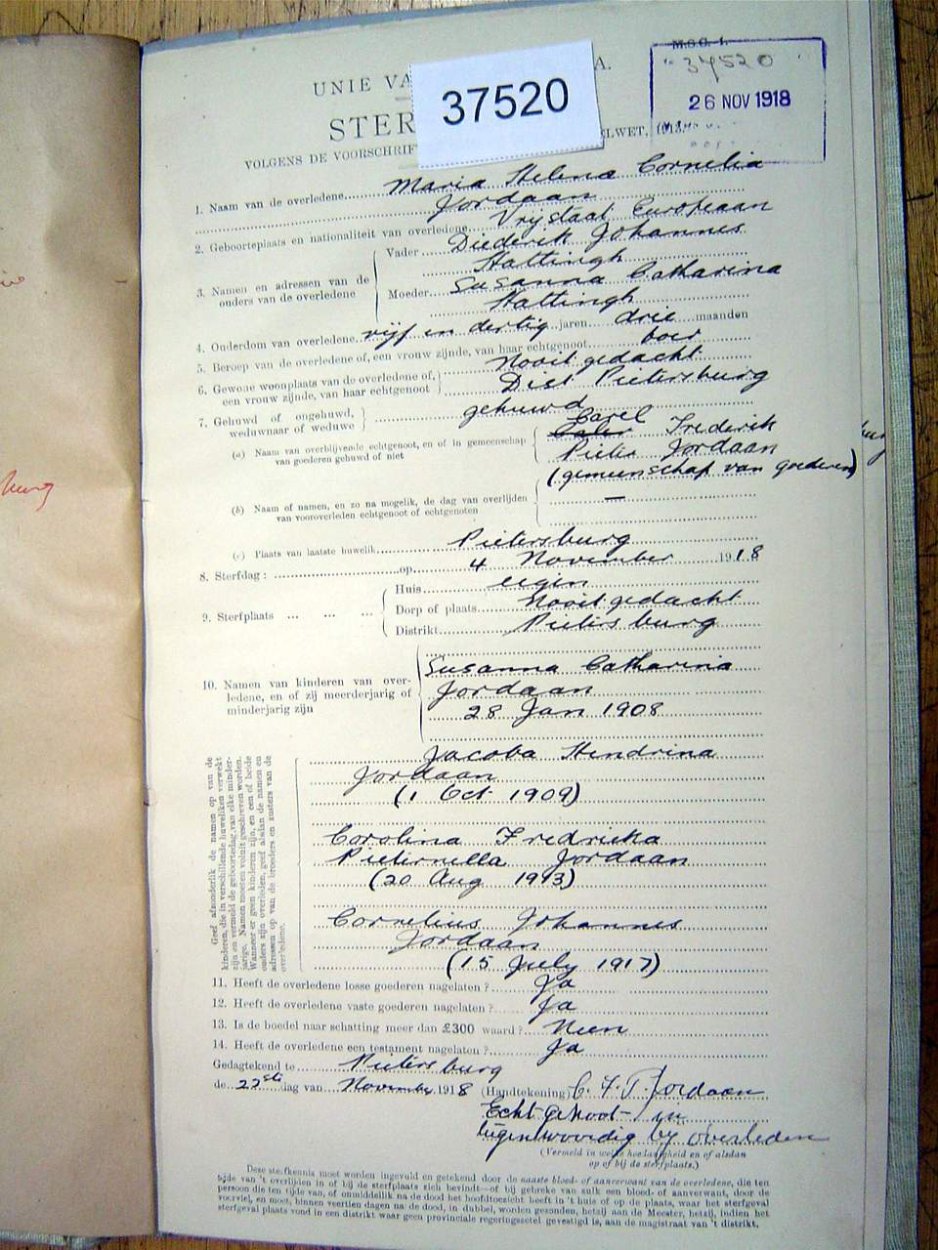 M.S.C. 1.
UNIE VA A.
37520
37520
26 NOV 1918
STER ELWET, 1913.
VOLGENS DE VOORSCHRIF
1. Naam van de overledene Maria Helena Cornelia
Jordaan
2. Geboorteplaats en nationaliteit van overledene Vrystaat Europeaan
3. Namen en adressen van de ouders van de overledene
Vader Diederik Johannes
Hattingh
Moeder Susanna Catharina
Hattingh
4. Ouderdom van overledene vijf en dertig jaren drie maanden
5. Beroep van de overledene of, een vrouw zijnde, van haar echtgenoot boer
6. Gewone woonplaats van de overledene of, een vrouw zijnde, van haar echtgenoot
Nooit gedacht
Dist Pietersburg
7. Gehuwd of ongehuwd, weduwnaar of weduwe gehuwd
(a) Naam van overblijvende echtgenoot, en of in gemeenschap van goederen gehuwd of niet
Carel Frederik
Pieter Jordaan
(gemeenschap van goederen)
(b) Naam of namen, en zo na mogelik, de dag van overlijden van vooroverleden echtgenoot of echtgenoten —
(c) Plaats van laatste huwelik Pietersburg
8. Sterfdag: op 4 November 1918
9. Sterfplaats ... ... ...
Huis eigen
Dorp of plaats Nooit gedacht
Distrikt Pietersburg
10. Namen van kinderen van overledene, en of zij meerderjarig of minderjarig zijn
Susanna Catharina
Jordaan
28 Jan 1908
Geef afzonderlik de namen op van de
kinderen, die in verschillende huweliken verwekt
zijn en vermeld de geboortedag van elke minder-
jarige. Namen moeten voluit geschreven worden.
Wanneer er geen kinderen zijn, en een of beide
ouders zijn overleden, geef alsdan de namen en
adressen op van de broeders en zusters van de
overledene.
Jacoba Hendrina
Jordaan
(1 Oct 1909)
Carolina Fredrieka
Pieternella Jordaan
(20 Aug 1913)
Cornelius Johannes
Jordaan
(15 July 1917)
11. Heeft de overledene losse goederen nagelaten? Ja
12. Heeft de overledene vaste goederen nagelaten? Ja
13. Is de boedel naar schatting meer dan £300 waard? Neen
14. Heeft de overledene een testament nagelaten? Ja
Gedagtekend te Pietersburg
de 22ste dag van November 1918 (Handtekening) C. F. P. Jordaan
Echtgenoot
tegenwoordig by overleden
(Vermeld in welke hoedanigheid en of alsdan
op of bij de sterfplaats.)
Deze sterfkennis moet worden ingevuld en getekend door de naaste bloed- of aanverwant van de overledene, die ten
tijde van 't overlijden in of bij de sterfplaats zich bevindt—of bij gebreke van zulk een bloed- of aanverwant, door de
persoon die ten tijde van, of onmiddellik na de dood het hoofdtoezicht heeft in 't huis of op de plaats, waar het sterfgeval
voorviel, en moet, binnen veertien dagen na de dood, in dubbel, worden gezonden, hetzij aan de Meester, hetzij, indien het
sterfgeval plaats vond in een distrikt waar geen provinciale regeringszetel gevestigd is, aan de magistraat van 't distrikt.